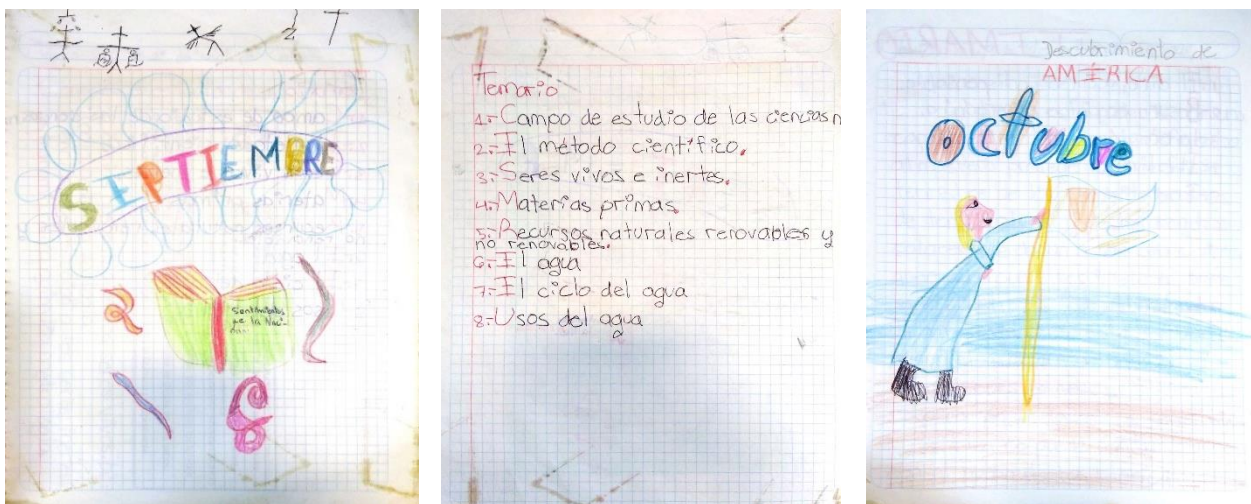 SEPTIEMBRE
Sentimientos
de la Naci-
Temario
1.-Campo de estudio de las ciencias n
2.-El método científico.
3.-Seres vivos e inertes.
4.-Materias primas.
5.-Recursos naturales renovables y
no renovables.
6.-El agua
7.-El ciclo del agua
8.-Usos del agua
Descubrimiento de
AMÉRICA
octubre